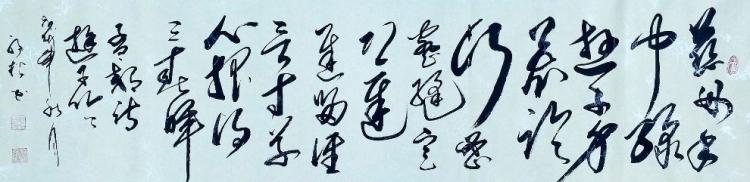 慈母手
中線
遊子身
上衣臨
行密
密縫意
恐遲
遲歸誰
言寸草
心報得
三春暉
孟郊詩
遊子吟
月
書